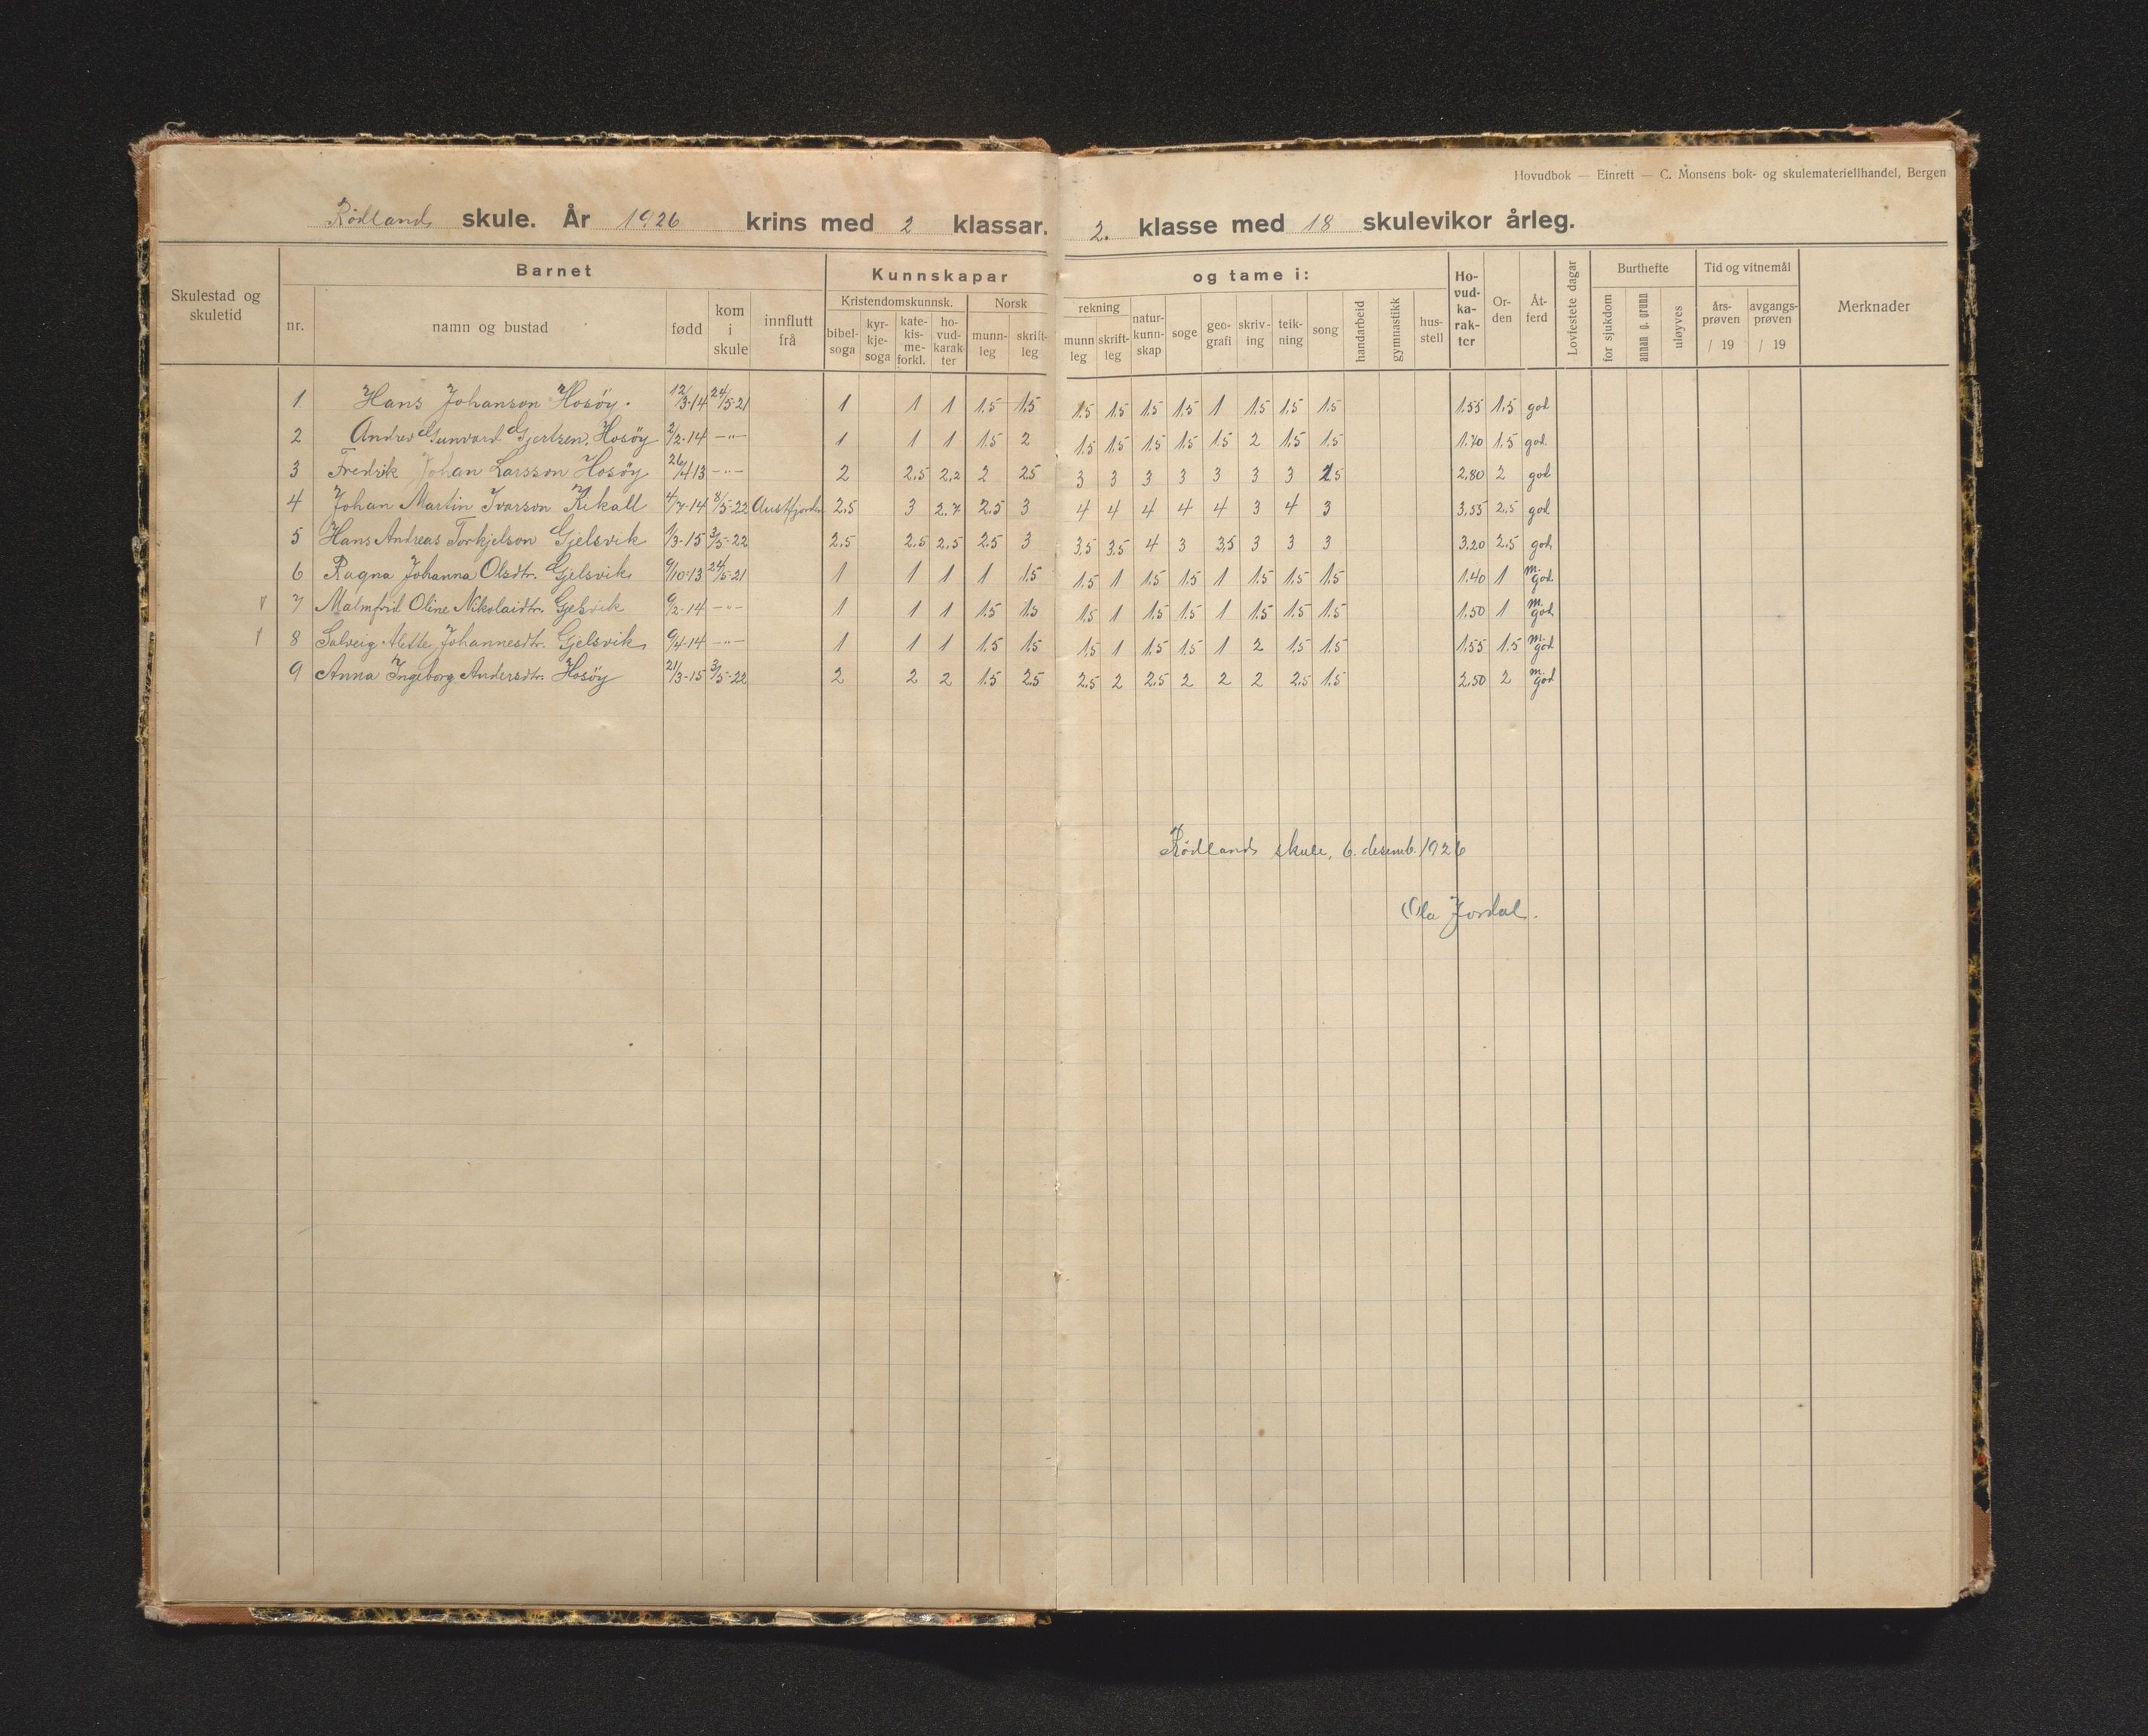 Hovudbok — Einrett — C. Monsens bok- og skulemateriellhandel, Bergen
Rødlands skule. År 1926 krins med 2 klassar. 2. klasse med 18 skulevikor årleg.
Skulestad og skuletid
Barnet
nr. namn og bustad fødd kom i skule innflutt frå
Kunnskapar og tame i:
Kristendomskunnsk. Norsk rekning
bibel-soga kyr-kje-soga kate-kis-me-forkl. ho-vud-karak-ter munn-leg skrift-leg munn leg skrift-leg natur-kunn-skap soge geo-grafi skriv-ing teik-ning song handarbeid gymnastikk hus-stell
Ho-vud-ka-rak-ter Or-den Åt-ferd Lovfestete dagar
Burthefte
for sjukdom annan g. grunn uløyves
Tid og vitnemål
års-prøven / 19 avgangs-prøven / 19
Merknader
1 Hans Johanson Hosøy. 12/3-14 24/5-21 1 1 1 1.5 1.5 1.5 1.5 1.5 1.5 1 1.5 1.5 1.5 1.55 1.5 god
2 Andrev Gunvard Gjertsen, Hosøy 2/2-14 -"- 1 1 1 1.5 2 1.5 1.5 1.5 1.5 1.5 2 1.5 1.5 1.70 1.5 god
3 Fredrik Johan Larsson Hosøy 26/4-13 -"- 2 2.5 2.2 2 2.5 3 3 3 3 3 3 3 2.5 2.80 2 god
4 Johan Martin Ivarson Rekall 4/7-14 8/5-22 Austfjorden 2.5 3 2.7 2.5 3 4 4 4 4 4 3 4 3 3.55 2.5 god
5 Hans Andreas Torkjelson Gjelsvik 1/3-15 3/5-22 2.5 2.5 2.5 2.5 3 3.5 3.5 4 3 3.5 3 3 3 3.20 2.5 god
6 Ragna Johanna Olsdtr. Gjelsvik 9/10-13 24/5-21 1 1 1 1 1.5 1.5 1 1.5 1.5 1 1.5 1.5 1.5 1.40 1 m. god
7 Malmfrid Oline Nikolaidtr. Gjelsvik 9/2-14 -"- 1 1 1 1.5 1.5 1.5 1 1.5 1.5 1 1.5 1.5 1.5 1.50 1 m. god
8 Solveig Alette Johannesdtr. Gjelsvik 9/4-14 -"- 1 1 1 1.5 1.5 1.5 1 1.5 1.5 1 2 1.5 1.5 1.55 1.5 m. god
9 Anna Ingeborg Andersdtr. Hosøy 21/3-15 3/5-22 2 2 2 1.5 2.5 2.5 2 2.5 2 2 2 2.5 1.5 2.50 2 m. god
Rødlands skule, 6. desemb. 1926
Ola Jordal.